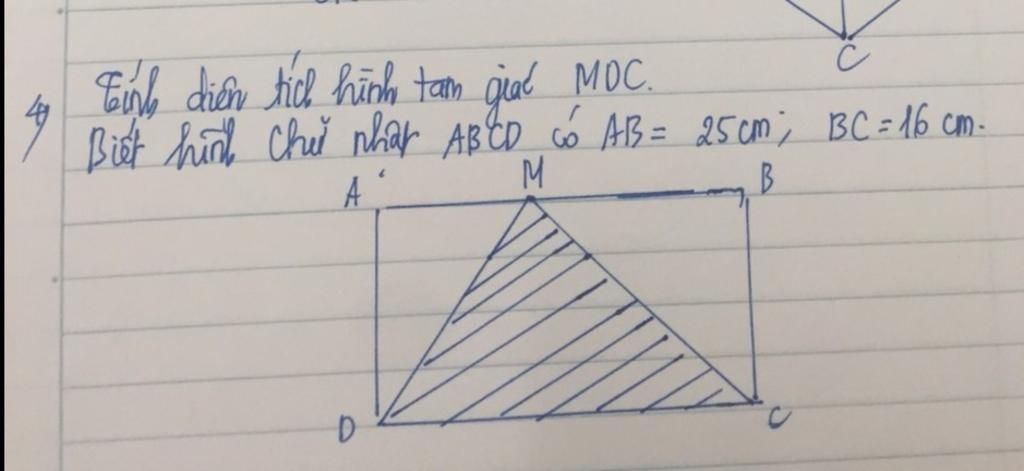 C
4) Tính diện tích hình tam giác MDC.
Biết hình chữ nhật ABCD có AB = 25cm; BC = 16 cm.
A M B
D C